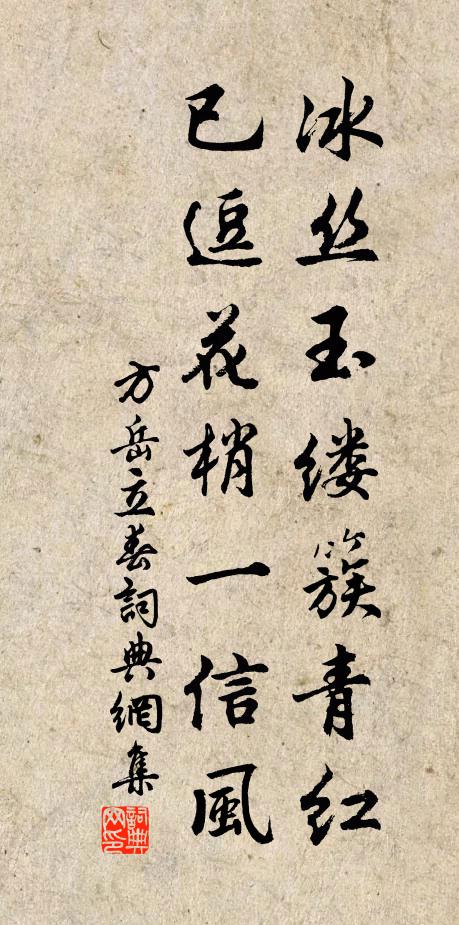 冰丝玉缕簇青红
已逗花梢一信风
方岳立春詞典網集
詞典网印